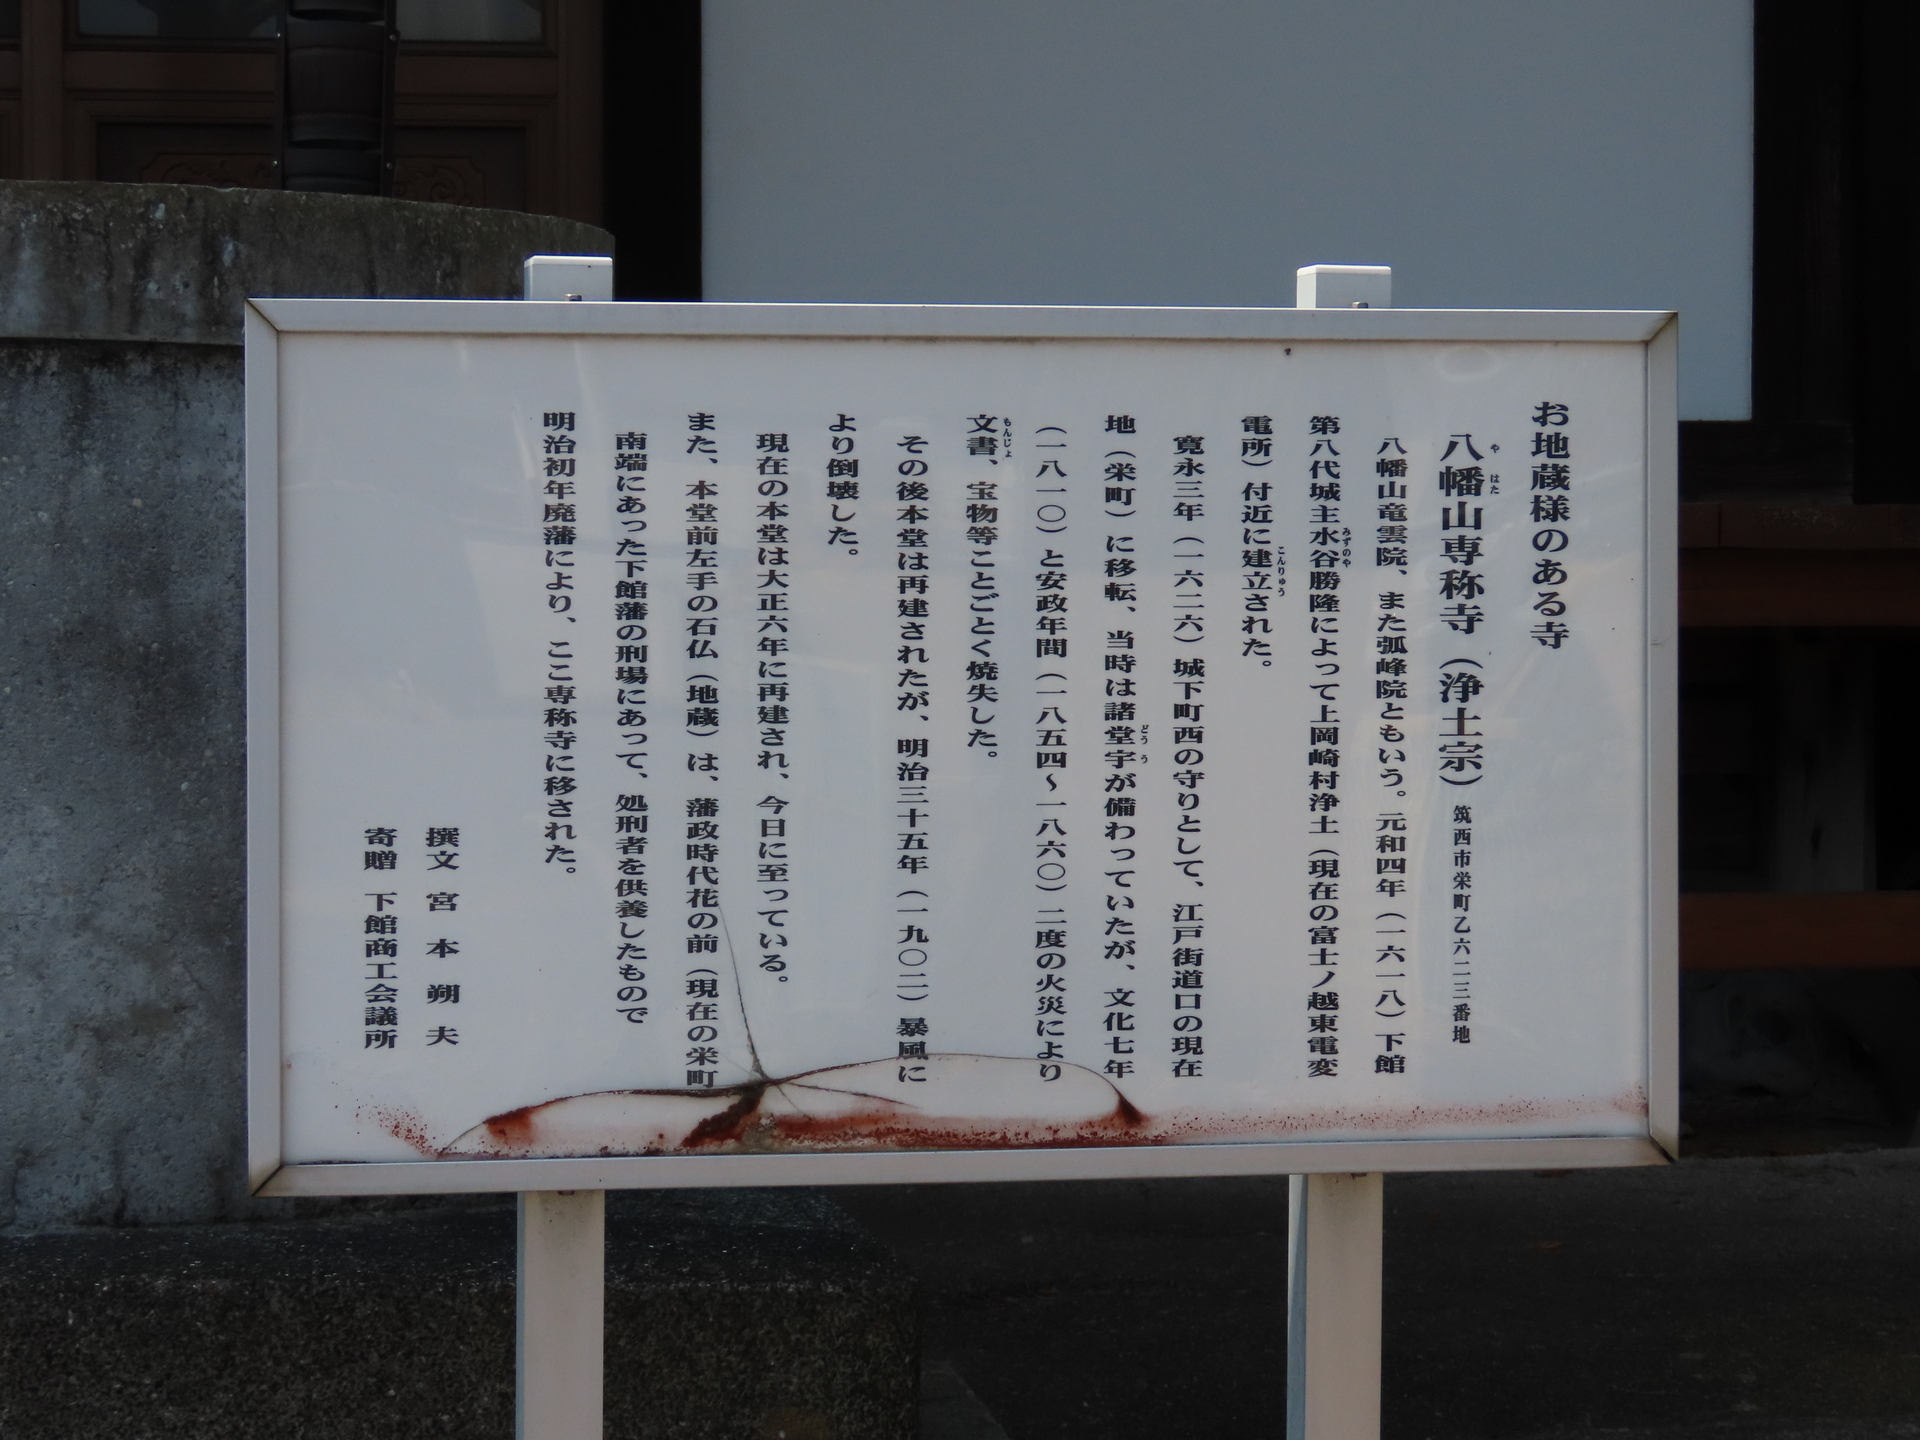 お地蔵様のある寺
八幡山専称寺（浄土宗）筑西市栄町乙六一三番地
やはた
八幡山竜雲院、また弧峰院ともいう。元和四年（一六一八）下館
第八代城主水谷勝隆によって上岡崎村浄土（現在の富士ノ越東電変
みずのや
電所）付近に建立された。
こんりゅう
寛永三年（一六二六）城下町西の守りとして、江戸街道口の現在
地（栄町）に移転、当時は諸堂宇が備わっていたが、文化七年
どうう
（一八一〇）と安政年間（一八五四～一八六〇）二度の火災により
文書、宝物等ことごとく焼失した。
もんじょ
その後本堂は再建されたが、明治三十五年（一九〇二）暴風に
より倒壊した。
現在の本堂は大正六年に再建され、今日に至っている。
また、本堂前左手の石仏（地蔵）は、藩政時代花の前（現在の栄町
南端にあった下館藩の刑場にあって、処刑者を供養したもので
明治初年廃藩により、ここ専称寺に移された。
撰文 宮本朔夫
寄贈 下館商工会議所